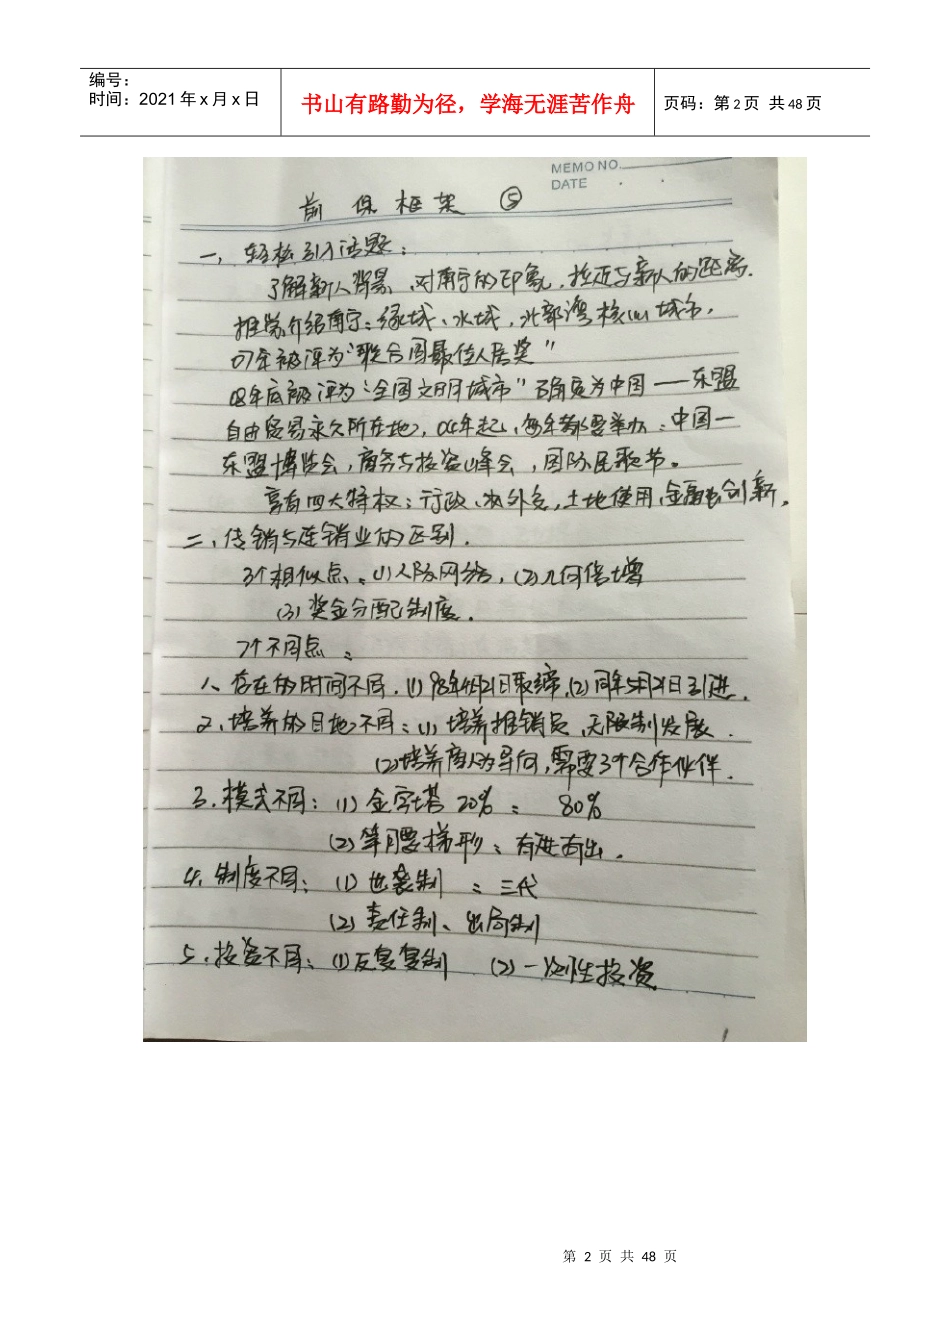 编号：
时间：2021年x月x日
书山有路勤为径，学海无涯苦作舟
页码：第2页 共48页
MEMO NO.
DATE
前保框架 ⑤
一，轻松引入话题：
了解新人背景、对南宁的印象，拉近与新人的距离.
推崇介绍南宁：绿城、水城，北部湾核心城市，
07年被评为“联合国最佳人居奖”
08年底被评为“全国文明城市”确定为中国——东盟
自由贸易永久所在地，04年起，每年都要举办：中国一
东盟博览会，商务与投资峰会，国际民歌节。
享有四大特权：行政、对外交，土地使用、金融创新。
二、传销与连锁业的区别.
3个相似点：(1)人际网络，(2)几何倍增
(3)奖金分配制度.
7个不同点：
1、存在的时间不同.(1)98年4月21日取缔,(2)同年5月21日引进.
2、培养的目地不同：(1)培养推销员、无限制发展.
(2)培养商人为导向，需要3个合作伙伴.
3.模式不同：(1)金字塔 20%： 80%
(2)等腰梯形：有进有出.
4.制度不同：(1)世袭制：三代
(2)责任制、出局制
5.投资不同：(1)反复复制 (2)一次性投资.
1
第 2 页 共 48 页